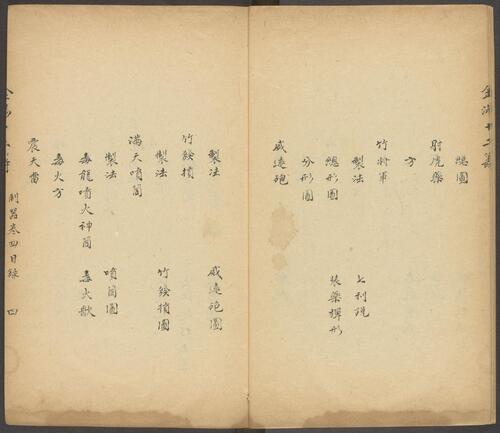 金湯十二籌
總圖
射虎藥
方
竹將軍
製法
總形圖 裝藥形
分形圖
威遠砲
製法 威遠砲圖
竹
製法 竹圖
滿天噴筒
製法 噴筒圖
毒龍噴火神筒 毒火歌
毒火方
震天雷
制器卷四目錄 四